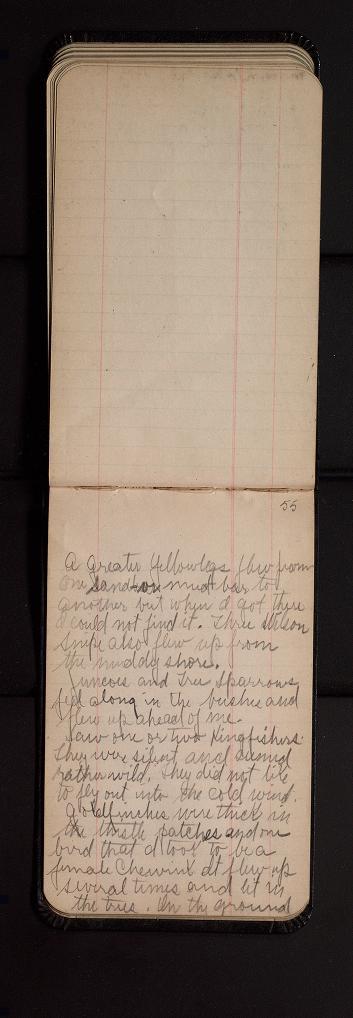 55
A Greater Yellowlegs flew from
one sand- or mud bar to
another but when I got there
I could not find it. Three Wilson
Snipe also flew up from
the muddy shore.
Juncoes and Tree Sparrows
fed along in the bushes and
flew up ahead of me.
Saw one or two Kingfishers
They were silent and seemed
rather wild. They did not like
to fly out into the cold wind.
Goldfinches were thick in
the thistle patches and one
bird that I took to be a
female Chewink. It flew up
several times and lit in
the trees. On the ground